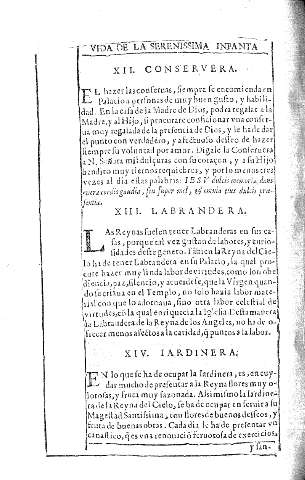 VIDA DE LA SERENISSIMA INFANTA
XII. CONSERVERA.
EL hazer las conservas, siempre se encomienda en
Palacio a personas de muy buen gusto, y habili-
dad. En la casa de la Madre de Dios, podra regalar a la
Madre, y al Hijo, si procurare condicionar vna conser-
ua muy regalada de la presencia de Dios, y le ha de dar
el punto con verdadero, y afectuoso desseo de hazer
siempre su voluntad por amor. Digale la Conservera
a N. Señora mil dulçuras con su coraçon, y a su Hijo
bendito muy tiernos requiebros, y por lo menos tres
vezes al dia estas palabras. IESV dulcis memoria, dans
vera cordis gaudia, sed super mel, & omnia eius dulcis præ-
sentia.
XIII. LABRANDERA.
LAS Reynas suelen tener Labranderas en sus ca-
sas, porque tal vez gustan de labores, y curio-
sidades deste genero. Tābien la Reyna del Cie-
lo ha de tener Labrandera en su Palacio, la qual pro-
cure hazer muy linda labor de virtudes, como son obe-
diencia, paz, silencio, y acuerdese, que la Virgen quan-
do se criaua en el Templo, no solo hazia labor mate-
rial con que lo adornaua, sino otra labor celestial de
virtudes, cō la qual enriquecia la Iglesia. Desta madera
la Labrandera de la Reyna de los Angeles, no ha de o-
frecer menos afectos a la caridad, q̄ puntos a la labor.
XIV. IARDINERA;
EN lo que se ha de ocupar la Iardinera, es, en cuy-
dar mucho de presentar a la Reyna flores muy o-
lorosas, y fruta muy sazonada. Assimismo la Iardine-
ra de la Reyna del Cielo, se ha de ocupar en servir a su
Magestad Santissima, con flores de buenos desseos, y
fruta de buenas obras. Cada dia le ha de presentar vn
canastico, q̄ es vna renouació feruorosa de exercicios,
y san-